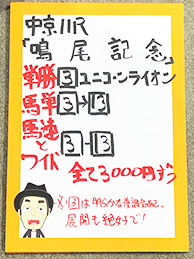 中京11R
「鳴尾記念」
単勝 3 ユニコーンライオン
馬単 3→13
馬連
と 3-13
ワイド
全て3000円ずつ
※3は
展開も絶好で!